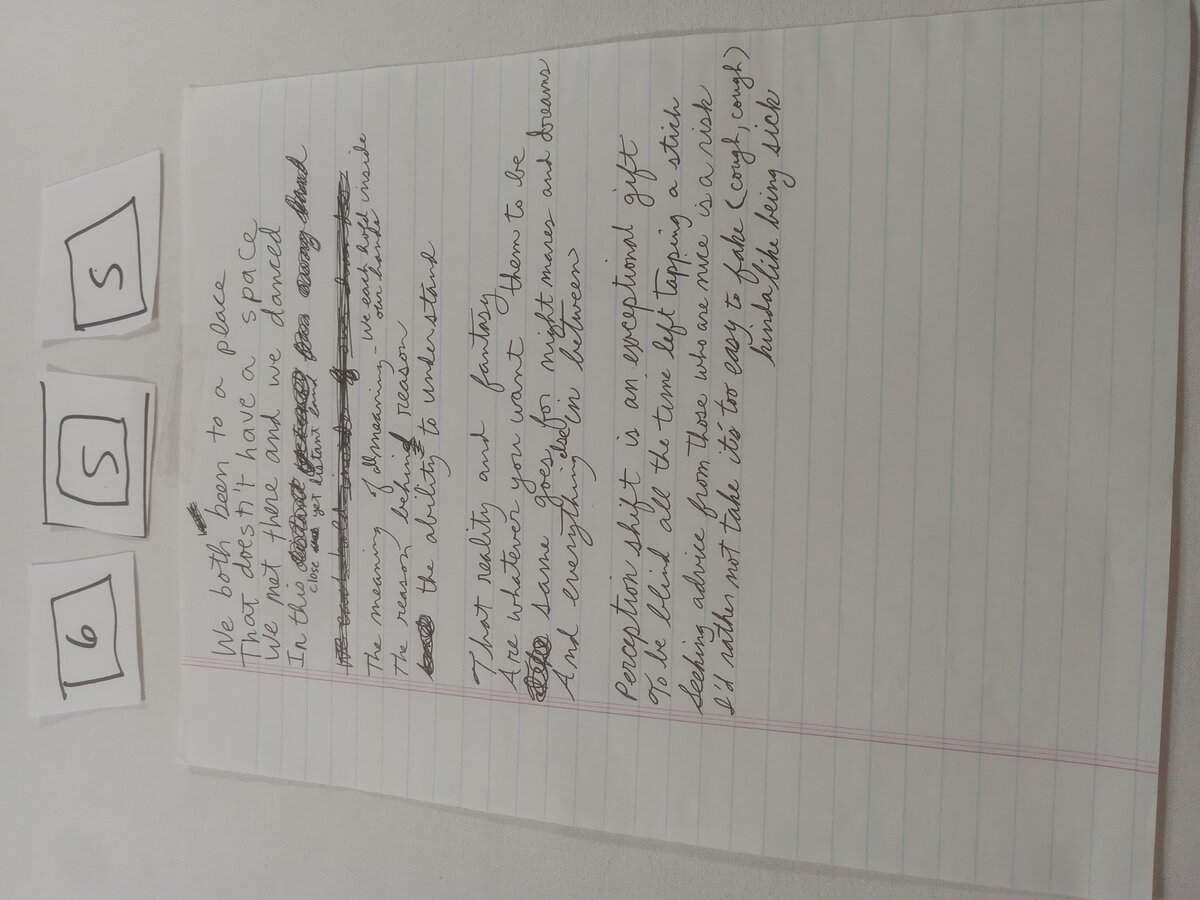 6 5 5
We both been to a place
That doesn't have a space
We met there and we danced
In this close yet distant land
The meaning of dmeaning - we each hold inside our hands
The reason behind reason
the ability to understand
That reality and fantasy
Are whatever you want them to be
same goes for nightmares and dreams
And everything else in between
Perception shift is an exceptional gift
To be blind all the time left tapping a stick
Seeking advice from those who are nice is a risk
I'd rather not take it's too easy to fake (cough, cough)
kinda like being sick